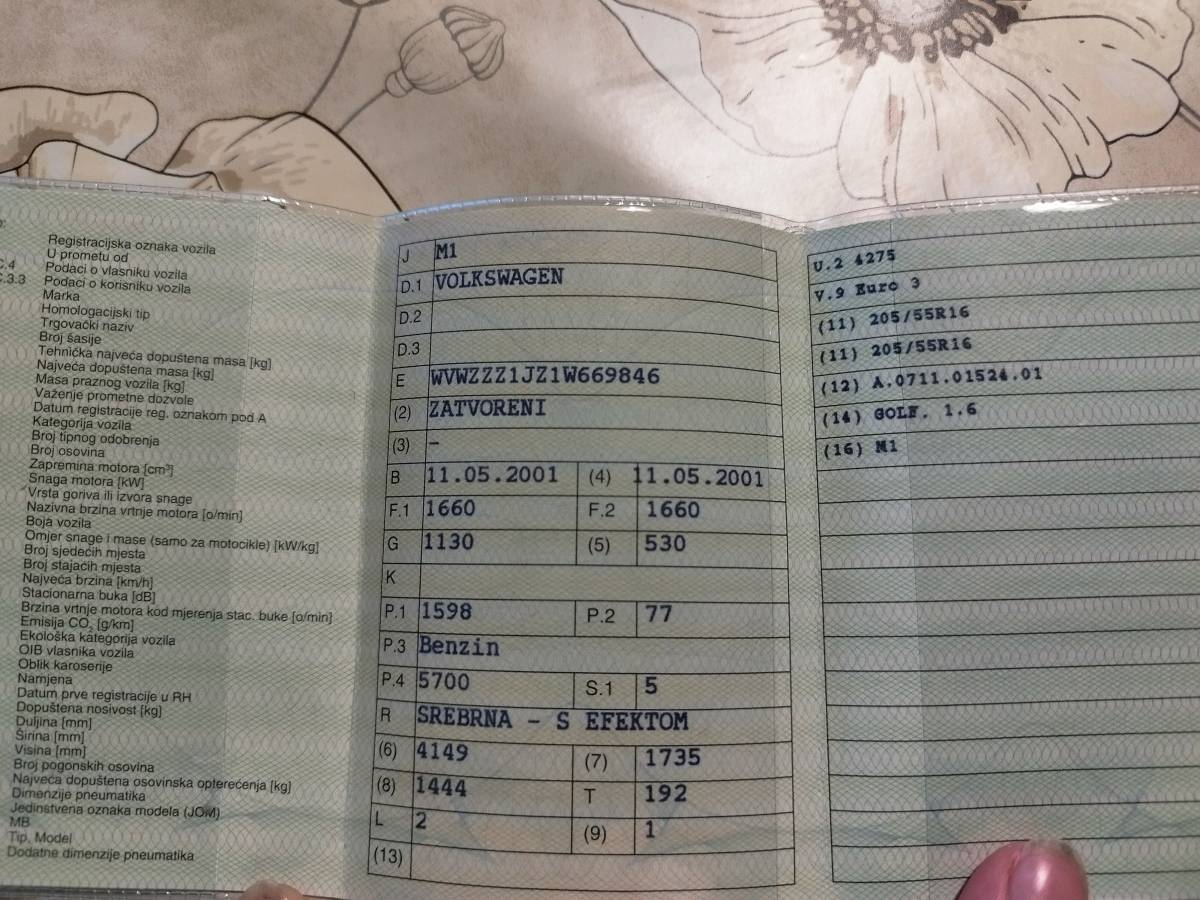 C.4
C.3.3
Registracijska oznaka vozila
U prometu od
Podaci o vlasniku vozila
Podaci o korisniku vozila
Marka
Homologacijski tip
Trgovački naziv
Broj šasije
Tehnička najveća dopuštena masa [kg]
Najveća dopuštena masa [kg]
Masa praznog vozila [kg]
Važenje prometne dozvole
Datum registracije reg. oznakom pod A
Kategorija vozila
Broj tipnog odobrenja
Broj osovina
Zapremina motora [cm³]
Snaga motora [kW]
Vrsta goriva ili izvora snage
Nazivna brzina vrtnje motora [o/min]
Boja vozila
Omjer snage i mase (samo za motocikle) [kW/kg]
Broj sjedećih mjesta
Broj stajaćih mjesta
Najveća brzina [km/h]
Stacionarna buka [dB]
Brzina vrtnje motora kod mjerenja stac. buke [o/min]
Emisija CO₂ [g/km]
Ekološka kategorija vozila
OIB vlasnika vozila
Oblik karoserije
Namjena
Datum prve registracije u RH
Dopuštena nosivost [kg]
Duljina [mm]
Širina [mm]
Visina [mm]
Broj pogonskih osovina
Najveća dopuštena osovinska opterećenja [kg]
Dimenzije pneumatika
Jedinstvena oznaka modela (JOM)
MB
Tip, Model
Dodatne dimenzije pneumatika
J M1
D.1 VOLKSWAGEN
D.2
D.3
E WVWZZZ1JZ1W669846
(2) ZATVORENI
(3) –
B 11.05.2001 (4) 11.05.2001
F.1 1660 F.2 1660
G 1130 (5) 530
K
P.1 1598 P.2 77
P.3 Benzin
P.4 5700 S.1 5
R SREBRNA - S EFEKTOM
(6) 4149 (7) 1735
(8) 1444 T 192
L 2 (9) 1
(13)
U.2 4275
V.9 Euro 3
(11) 205/55R16
(11) 205/55R16
(12) A.0711.01524.01
(14) GOLF. 1.6
(16) M1